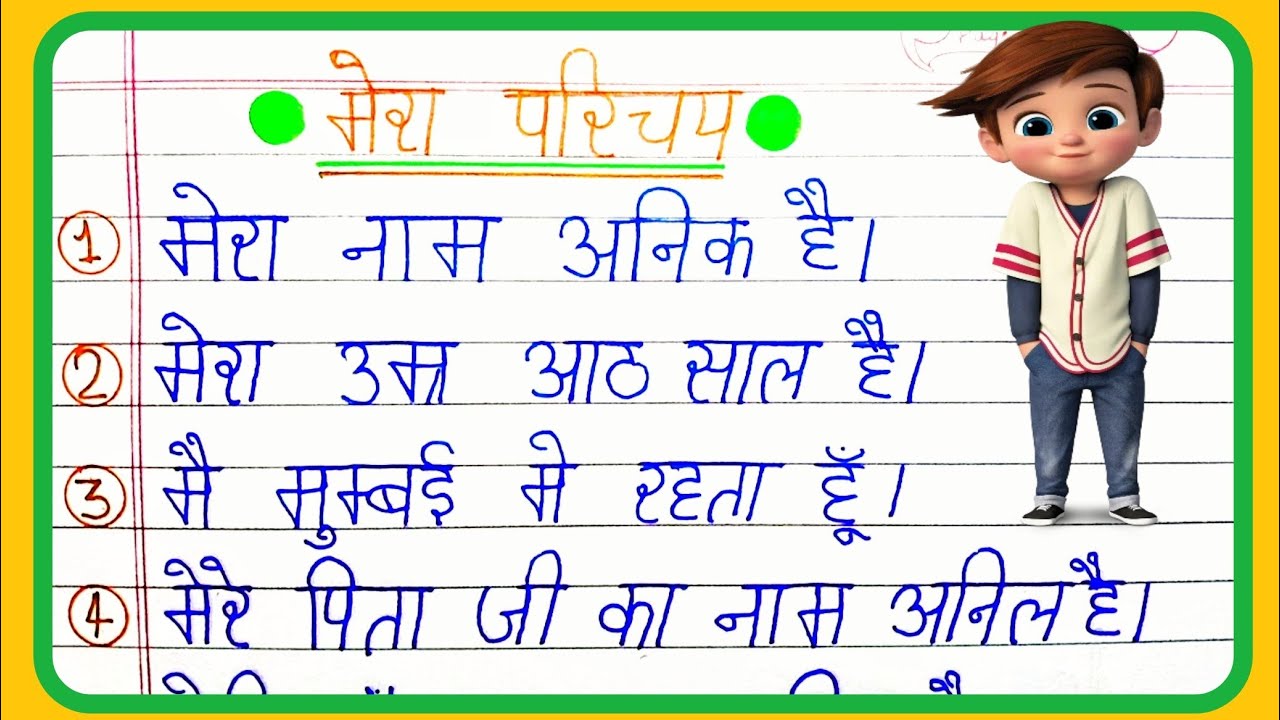 मेरा परिचय
1 मेरा नाम अनिक है।
2 मेरा उम्र आठ साल है।
3 मै मुम्बई मे रहता हूँ।
4 मेरे पिता जी का नाम अनिल है।